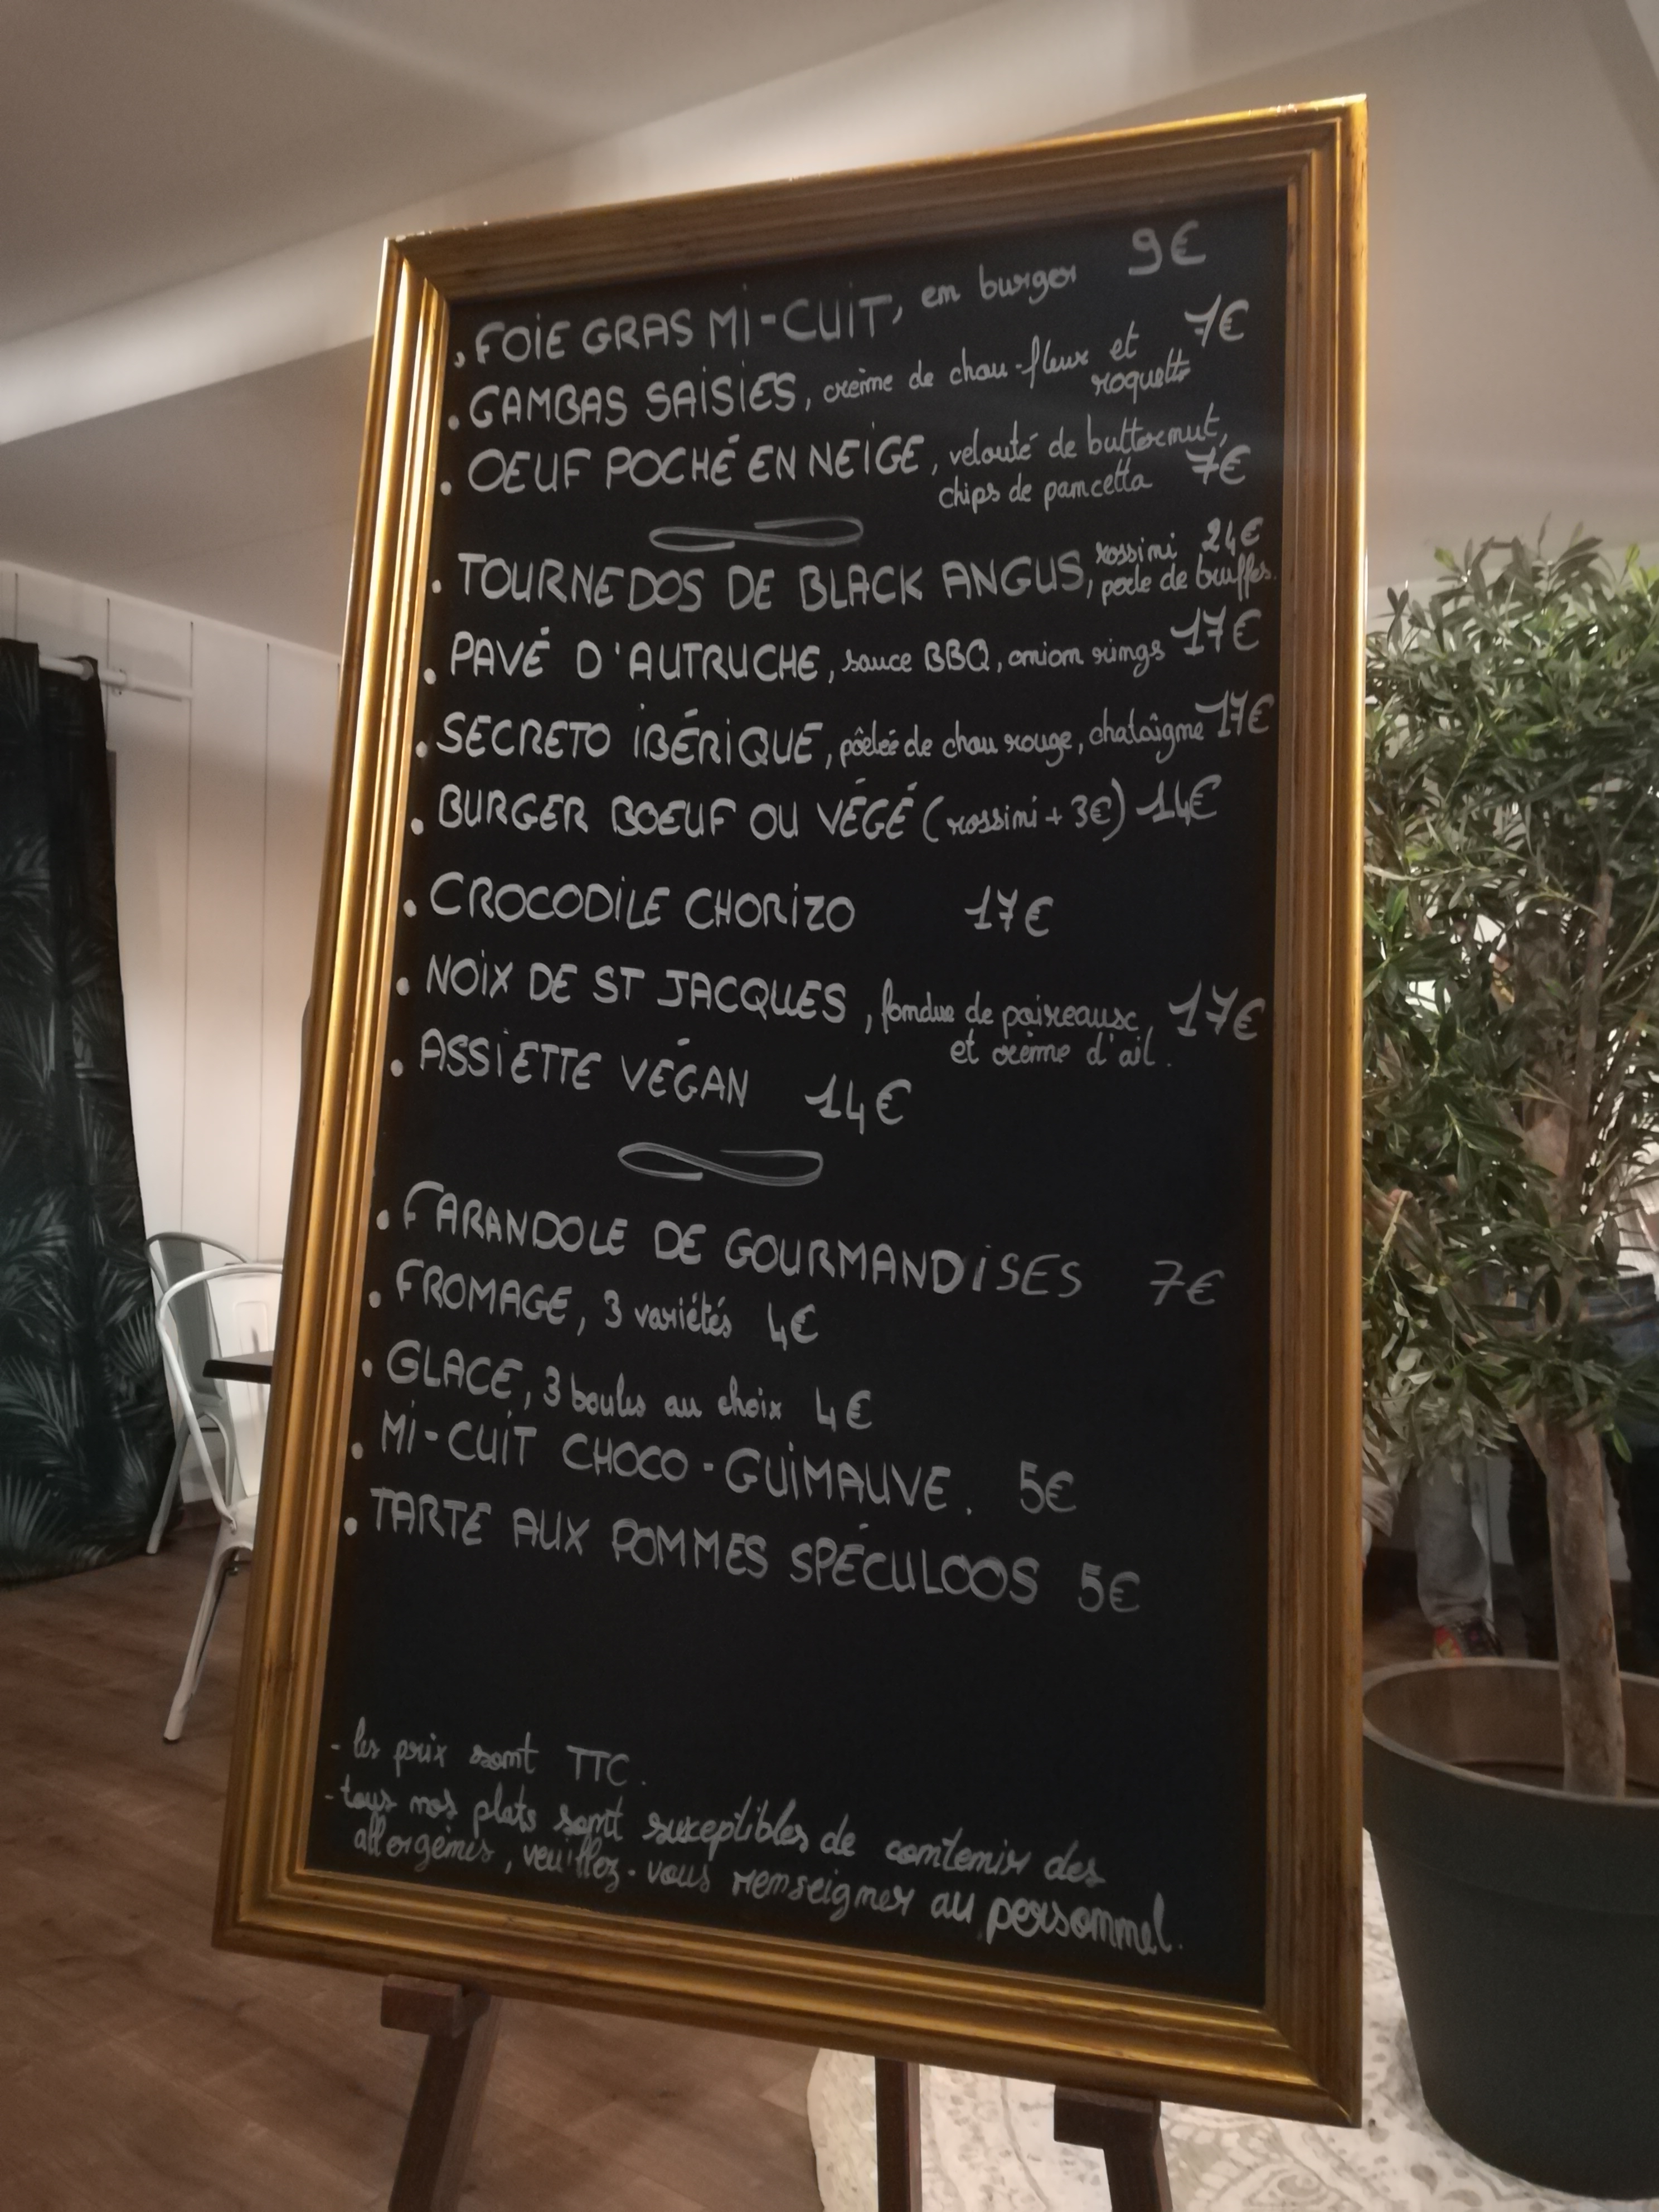 . FOIE GRAS MI-CUIT, en burger 9€
. GAMBAS SAISIES, crème de chou-fleur et 7€
roquette
. OEUF POCHÉ EN NEIGE, velouté de butternut,
chips de pancetta 7€
. TOURNEDOS DE BLACK ANGUS, rossini 24€
poele de truffes.
. PAVÉ D'AUTRUCHE, sauce BBQ, onion rings 17€
. SECRETO IBÉRIQUE, pôelée de chou rouge, chataîgne 17€
. BURGER BOEUF OU VÉGÉ (rossini + 3€) 14€
. CROCODILE CHORIZO 17€
. NOIX DE ST JACQUES, fondue de poireaux, 17€
et crème d'ail.
. ASSIETTE VÉGAN 14€
. FARANDOLE DE GOURMANDISES 7€
. FROMAGE, 3 variétés 4€
. GLACE, 3 boules au choix 4€
. MI-CUIT CHOCO-GUIMAUVE. 5€
. TARTE AUX POMMES SPÉCULOOS 5€
- les prix sont TTC.
- tous nos plats sont suceptibles de contenir des
allergènes, veuillez-vous renseigner au personnel.